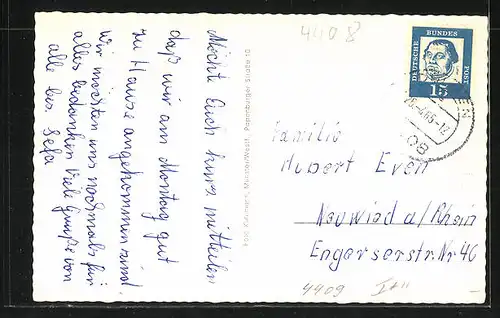 4408
Möchte Euch kurz mitteilen
daß wir am Montag gut
zu Hause angekommen sind.
Wir möchten uns nochmals für
alles bedanken Viele Grüße von
alle bes. Sefa
Foto Kuhlmann, Münster/Westf., Papenburger Straße 10
DEUTSCHE BUNDES POST
15
Familie
Hubert Even
Neuwied a/Rhein
Engerserstr. Nr 46
4409